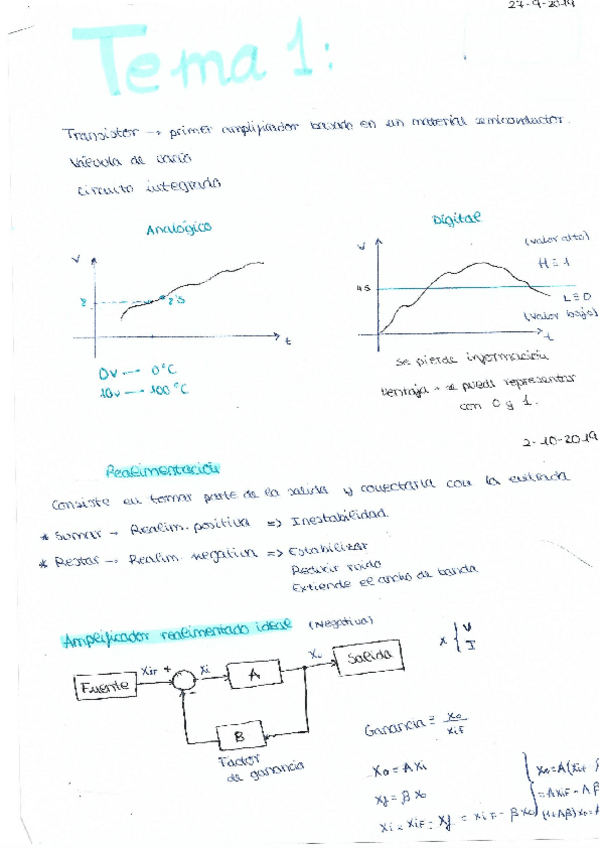 27-9-2019
Tema 1:
Transistor → primer amplificador basado en un material semiconductor.
Válvula de vacío
Circuito integrado
Analógico
V
2
2'5
t
0V --→ 0°C
10V --→ 100°C
Digital
V
4.5
(valor alto)
H ≡ 1
L ≡ 0
(valor bajo)
t
Se pierde información
Ventaja → se puede representar
con 0 y 1.
2-10-2019
Realimentación
Consiste en tomar parte de la salida y conectarla con la entrada
* Sumar → Realim. positiva => Inestabilidad
* Restar → Realim. negativa => Estabilizar
Reducir ruido
Extiende el ancho de banda
Amplificador realimentado ideal (Negativa)
x { V
I
Fuente
xif +
xi
A
xo
Salida
-
B
Factor
de ganancia
Ganancia = xo / xif
xo = A xi
xf = β xo
xi = xif - xf = xif - β xo
xo = A(xif
= A xif - A β
(1+Aβ) xo = A